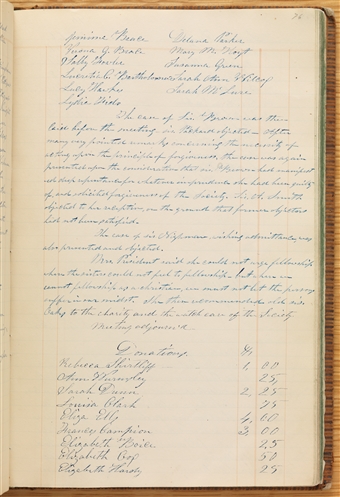 76
Jemima Beale Delana Parker
Viana G. Beale Mary M. Hoyt
Sally Susanna Green
Lucretia Bartholomew Sarah Ann
Lucy Hawkes Sarah McLure
Lydia Field
The case of Sis Brown was then
laid before the meeting, sis objected — after
many very pointed remarks concerning the necessity of
acting upon the principle of forgiveness, the case was again
presented upon the consideration that sis Brown had manifest
ed deep repentance for whatever imprudence she had been guilty
of and solicited forgiveness of the Society. Sis. H. Smith
objected to her reception, on the ground that former objectors
had not been satisfied.
The case of sis wishing admittance, was
also presented and objected.
Mrs. President said she could not urge fellowship
where the sisters could not feel to fellowship but when we
cannot fellowship as a christian, we must not let the person
suffer in our midst. She then recommended old sis
Oaks to the charity and the watch care of the Society
Meeting adjourned.
Donations. $
Rebecca Shirtliff 1, 00
Ann 25
Sarah Dunn 2, 25
Louisa Clark 25
Eliza Ells 4, 00
Campion 3, 00
Elizabeth 25
Elizabeth Cox 50
Elizabeth Hardy 25